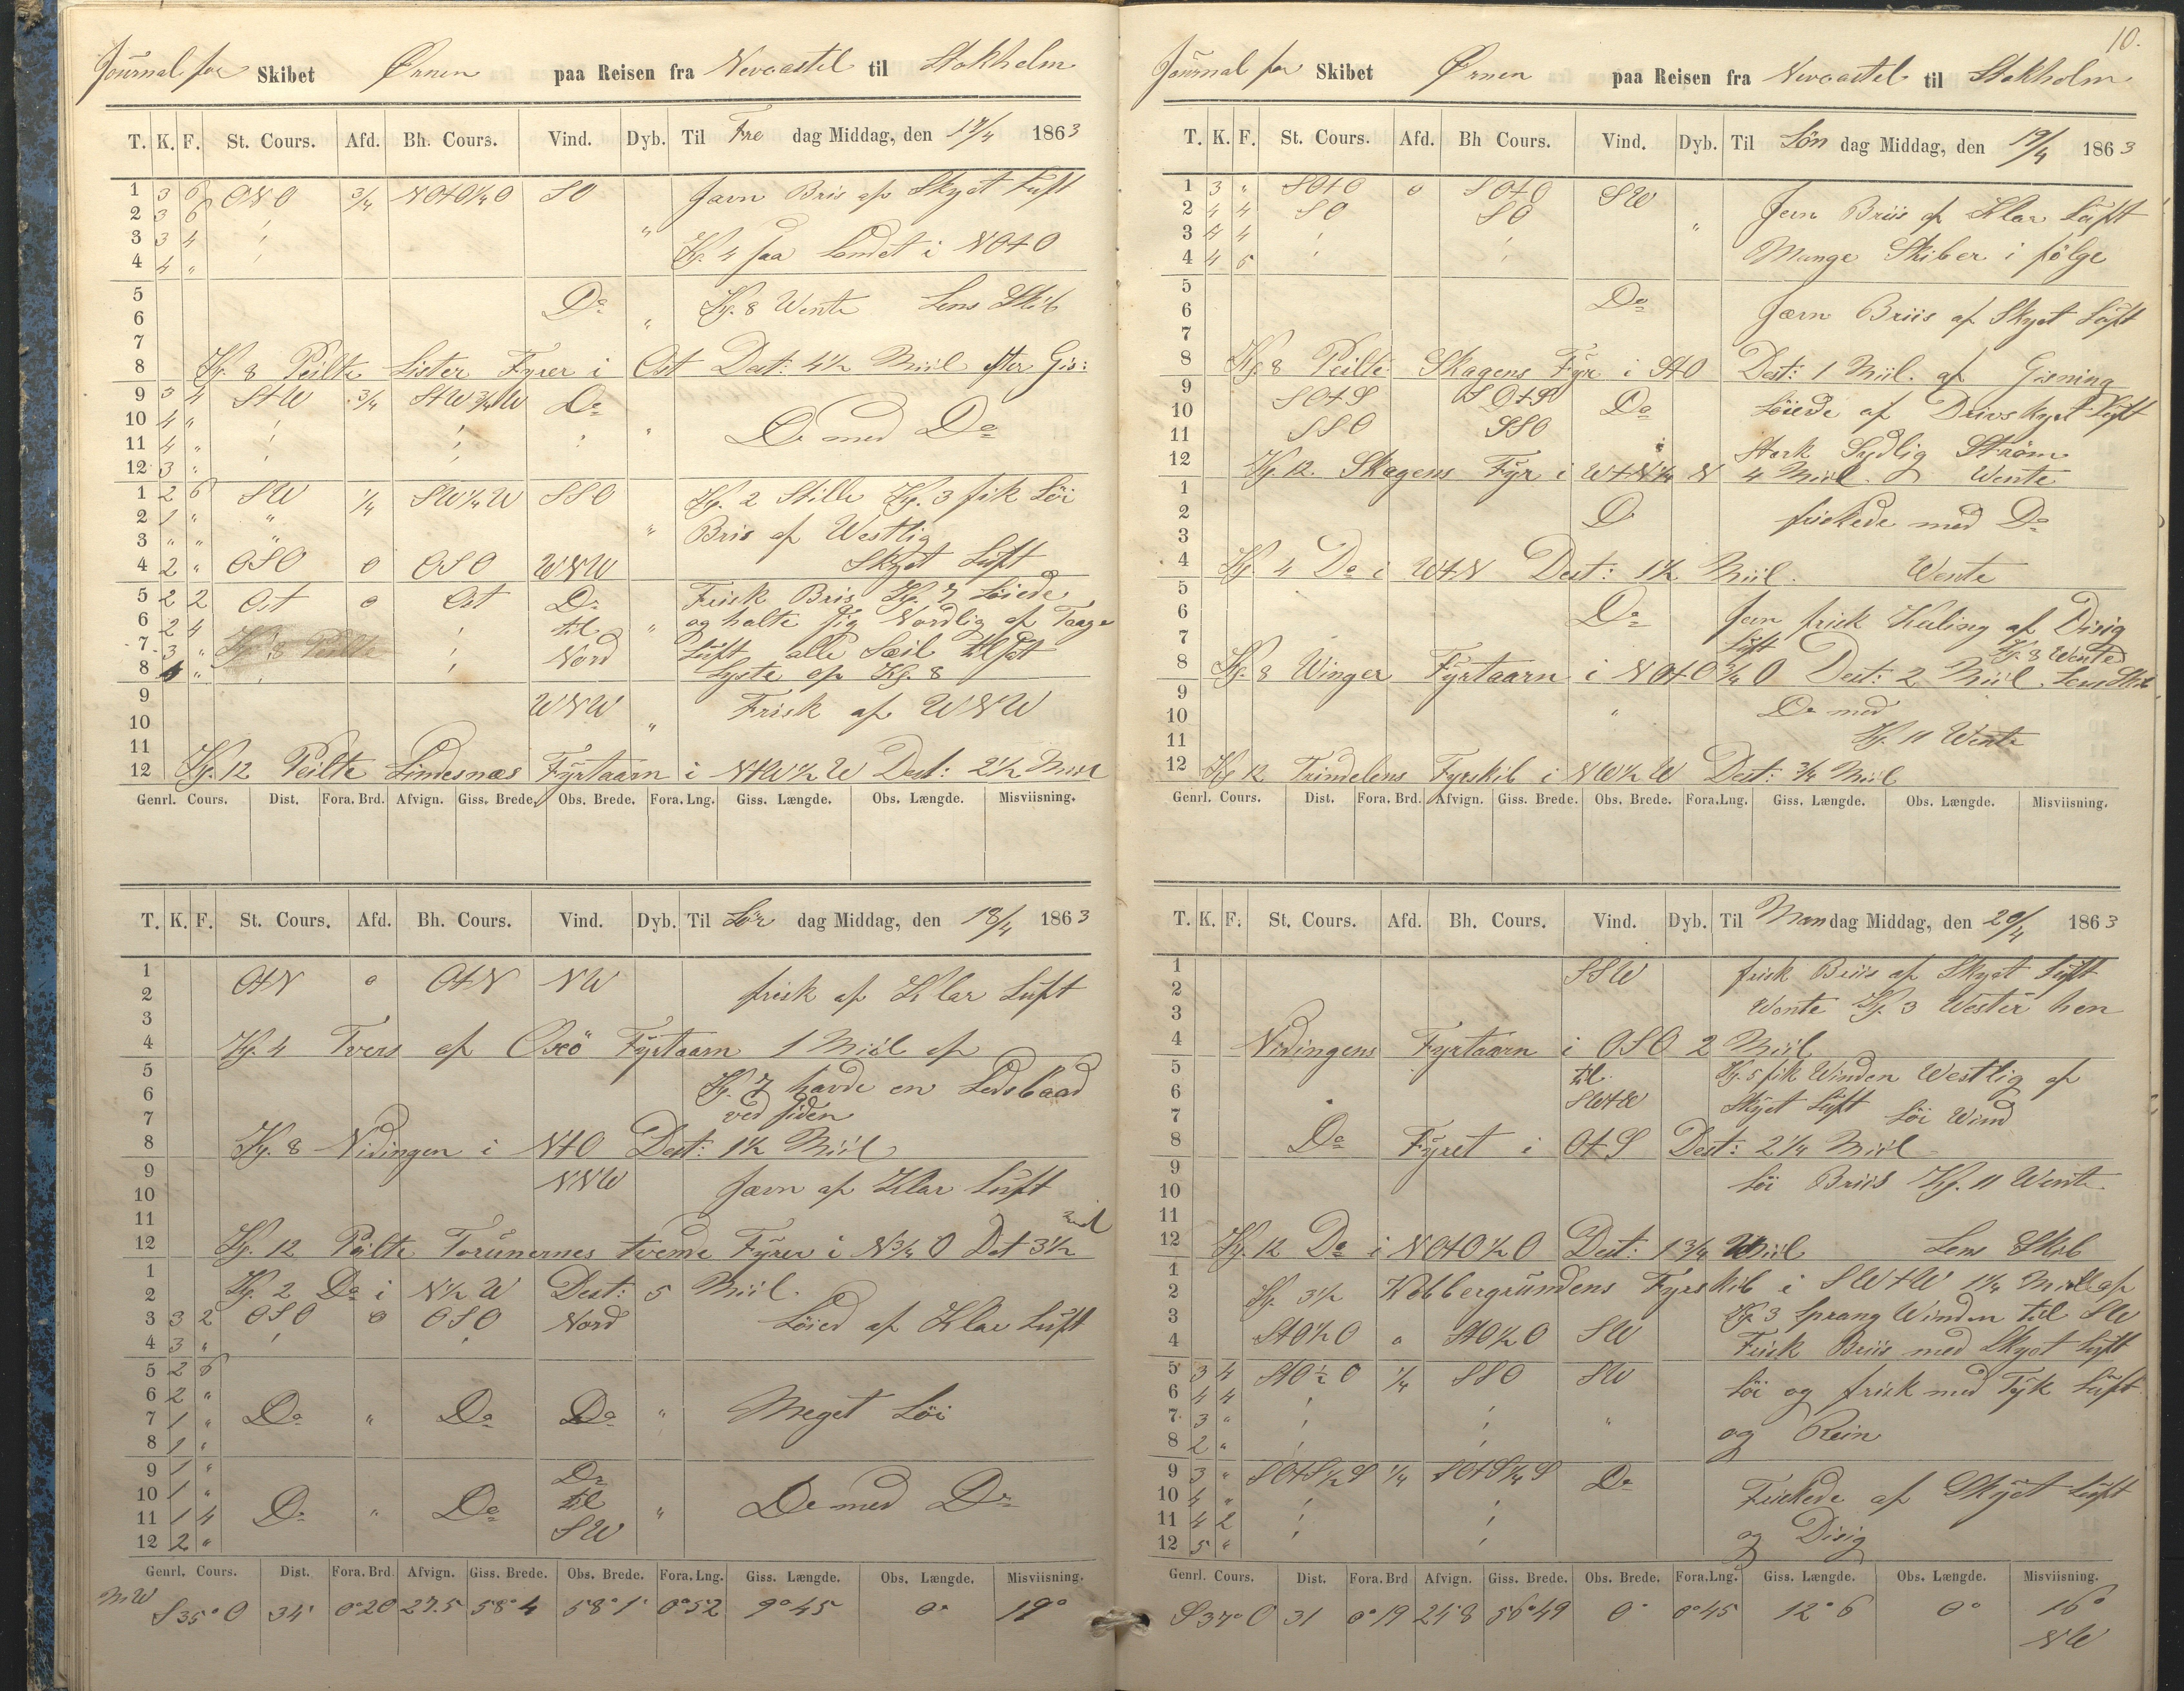 Journal for Skibet Ørnen paa Reisen fra Newcastel til Stokholm
T. K. F. St. Cours. Afd. Bh. Cours. Vind. Dyb. Til Fre dag Middag, den 17/4 1863
1 3 6 ONO 3/4 NOtO1/4O SO Jævn Bris af Skyet Luft
2 3 6
3 3 4 " Kl. 4 saa Landet i NOtO
4 4 "
5 Do Kl. 8 Wente Lens Skib
6 "
7
8 Kl. 8 Peilte Lister Fyrer i Ost Dest: 4 1/2 Miil efter Gis:
9 3 4 StW 3/4 StW3/4W Do
10 4 " " Do med Do
11 4 "
12 3 "
1 2 6 SW 1/4 SW1/4W SSO Kl. 2 Stille Kl. 3 fik Löi
2 1 " " " Bris af Westlig
3 " " "
4 2 " OSO o OSO WNW Skyet Luft
5 2 2 Ost o Ost Do Frisk Bris Kl. 7 Löiede
6 2 4 til " og halte sig Nordlig af Taage
7 3 " Kl. 8 Peilte Nord Luft alle Seil tilsat
8 4 " Lyste op Kl. 8
9 WNW Frisk af WNW
10 "
11
12 Kl. 12 Peilte Lindesnæs Fyrtaarn i NtW1/2W Dest: 2 1/2 Miil
Genrl. Cours. Dist. Fora. Brd. Afvign. Giss. Brede. Obs. Brede. Fora. Lng. Giss. Længde. Obs. Længde. Misviisning.
T. K. F. St. Cours. Afd. Bh. Cours. Vind. Dyb. Til Lör dag Middag, den 18/4 1863
1 OtN o OtN NW frisk af Klar Luft
2
3
4 Kl. 4 Tvers af Oxö Fyrtaarn 1 Miil af
5 Kl. 7 havde en Lodsbaad
6 ved siden
7
8 Kl. 8 Nidingen i NtO Dest: 1 1/2 Miil
9 NNW Jævn af Klar Luft
10
11
12 Kl. 12 Peilte Torunernes tvende Fyrer i N3/4O Det 3 1/2
1 Kl. 2 Do i N1/2W Dest: 5 Miil.
2
3 3 2 OSO o OSO Nord Löied af Klar Luft
4 3 "
5 2 6
6 2 "
7 1 " Do " Do Do " Meget Löi
8 1 "
9 1 " Do
10 1 " til
11 1 4 Do " Do SW " Do med Do
12 2 "
Genrl. Cours. Dist. Fora. Brd Afvign. Giss. Brede. Obs. Brede. Fora. Lng. Giss. Længde. Obs. Længde. Misviisning.
S35°O 34' 0°20 27.5 58°4 58°1' 0°52 9°45 0° 19°
10.
Journal for Skibet Ørnen paa Reisen fra Newcastel til Stokholm
T. K. F. St. Cours. Afd. Bh Cours. Vind. Dyb. Til Sön dag Middag, den 19/4 1863
1 3 " SOtO o SOtO SW
2 4 4 SO SO " Jevn Briis af Klar Luft
3 4 4
4 4 6 Mange Skiber i fölge
5 Do
6 Jævn Briis af Skyet Luft
7
8 Kl. 8 Peilte Skagens Fyr i StO Dest: 1 Miil. af Gisning
9 SOtS SOtS Do Löiede af Drivskyet Luft
10 SSO SSO
11 Sterk Sydlig Ström
12 Kl. 12. Skagens Fyr i WtN1/4N 4 Miil. Wente
1
2 D friskede med Do
3
4 Kl. 4 Do i WtN Dest: 1 1/2 Miil. Wente
5
6 Do Jevn frisk Kuling af Disig
7 Luft Kl. 8 Wente
8 Kl. 8 Winger Fyrtaarn i NOtO3/4O Dest: 2 Miil. Lens Skib
9
10 " Do med
11 Kl. 11 Wente
12 Kl 12 Trindelens Fyrskib i NW1/2W Dest: 3/4 Miil
Genrl. Cours. Dist. Fora. Brd. Afvign. Giss. Brede. Obs. Brede. Fora.Lng. Giss. Længde. Obs. Længde. Misviisning.
T. K. F. St. Cours. Afd. Bh. Cours. Vind. Dyb. Til Man dag Middag, den 20/4 1863
1 SSW frisk Briis af Skyet Luft
2
3 Wente Kl. 3 Wester hen
4 Nidingens Fyrtaarn i OSO 2 Miil
5 til Kl. 5 fik Winden Westlig af
6 SWtW Skyet Luft Löi Wind
7
8 Do Fyret i OtS Dest: 2 1/4 Miil
9 Löi Briis Kl. 11 Wente
10
11
12 Kl. 12 Do i NOtO1/2O Dest: 1 3/4 Miil Lens Skib
1
2 Kl. 3 1/2 Kobbergrundens Fyrskib i SWtW 1 1/4 Miil af
3 Kl. 3 sprang Winden til SW
4 StO1/2O o StO1/2O SW Frisk Briis med Skyet Luft
5 3 4 StO1/2O 1/4 SSO SW
6 4 4 Löi og frisk med Tyk Luft
7 3 " "
8 2 " og Rein
9 3 " SOtS1/2S 1/4 SOtS1/4S Do
10 4 " Friskede af Skyet Luft
11 4 2
12 5 " og Disig
Genrl. Cours. Dist. Fora. Brd Afvign. Giss. Brede. Obs. Brede. Fora.Lng. Giss. Længde. Obs. Længde. Misviisning.
S37°O 31 0°19 24'8 56°49 0° 0°45 12°6 0° 16°
NW